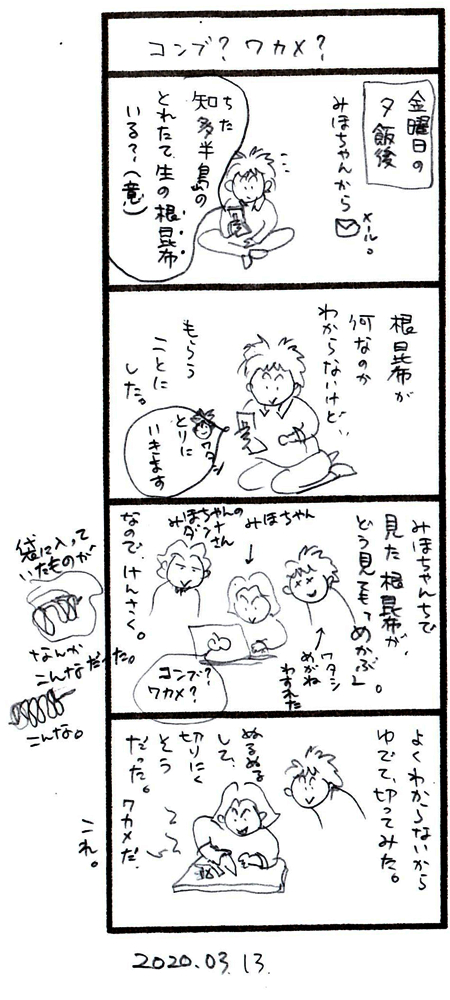 コンブ？ワカメ？
金曜日の
夕飯後
みほちゃんから
メール。
ちた
知多半島の
とれたて生の根昆布
いる？（意）
根昆布が
何なのか
わからないけど、
もらう
ことに
した。
ワタシ
とりに
いきます
みほちゃんちで
見た根昆布が、
どう見ても「めかぶ」。
みほちゃん
みほちゃんの
ダンナ
さん
ワタシ
めがね
わすれた
なので、けんさく。
コンブ？
ワカメ？
袋に入って
いたものが
なんか
こんなだった。
こんな。
よくわからないから
ゆでて、切ってみた。
ぬるぬる
して、
切りにく
そう
だった。
ワカメだ、
これ。
2020.03.13.